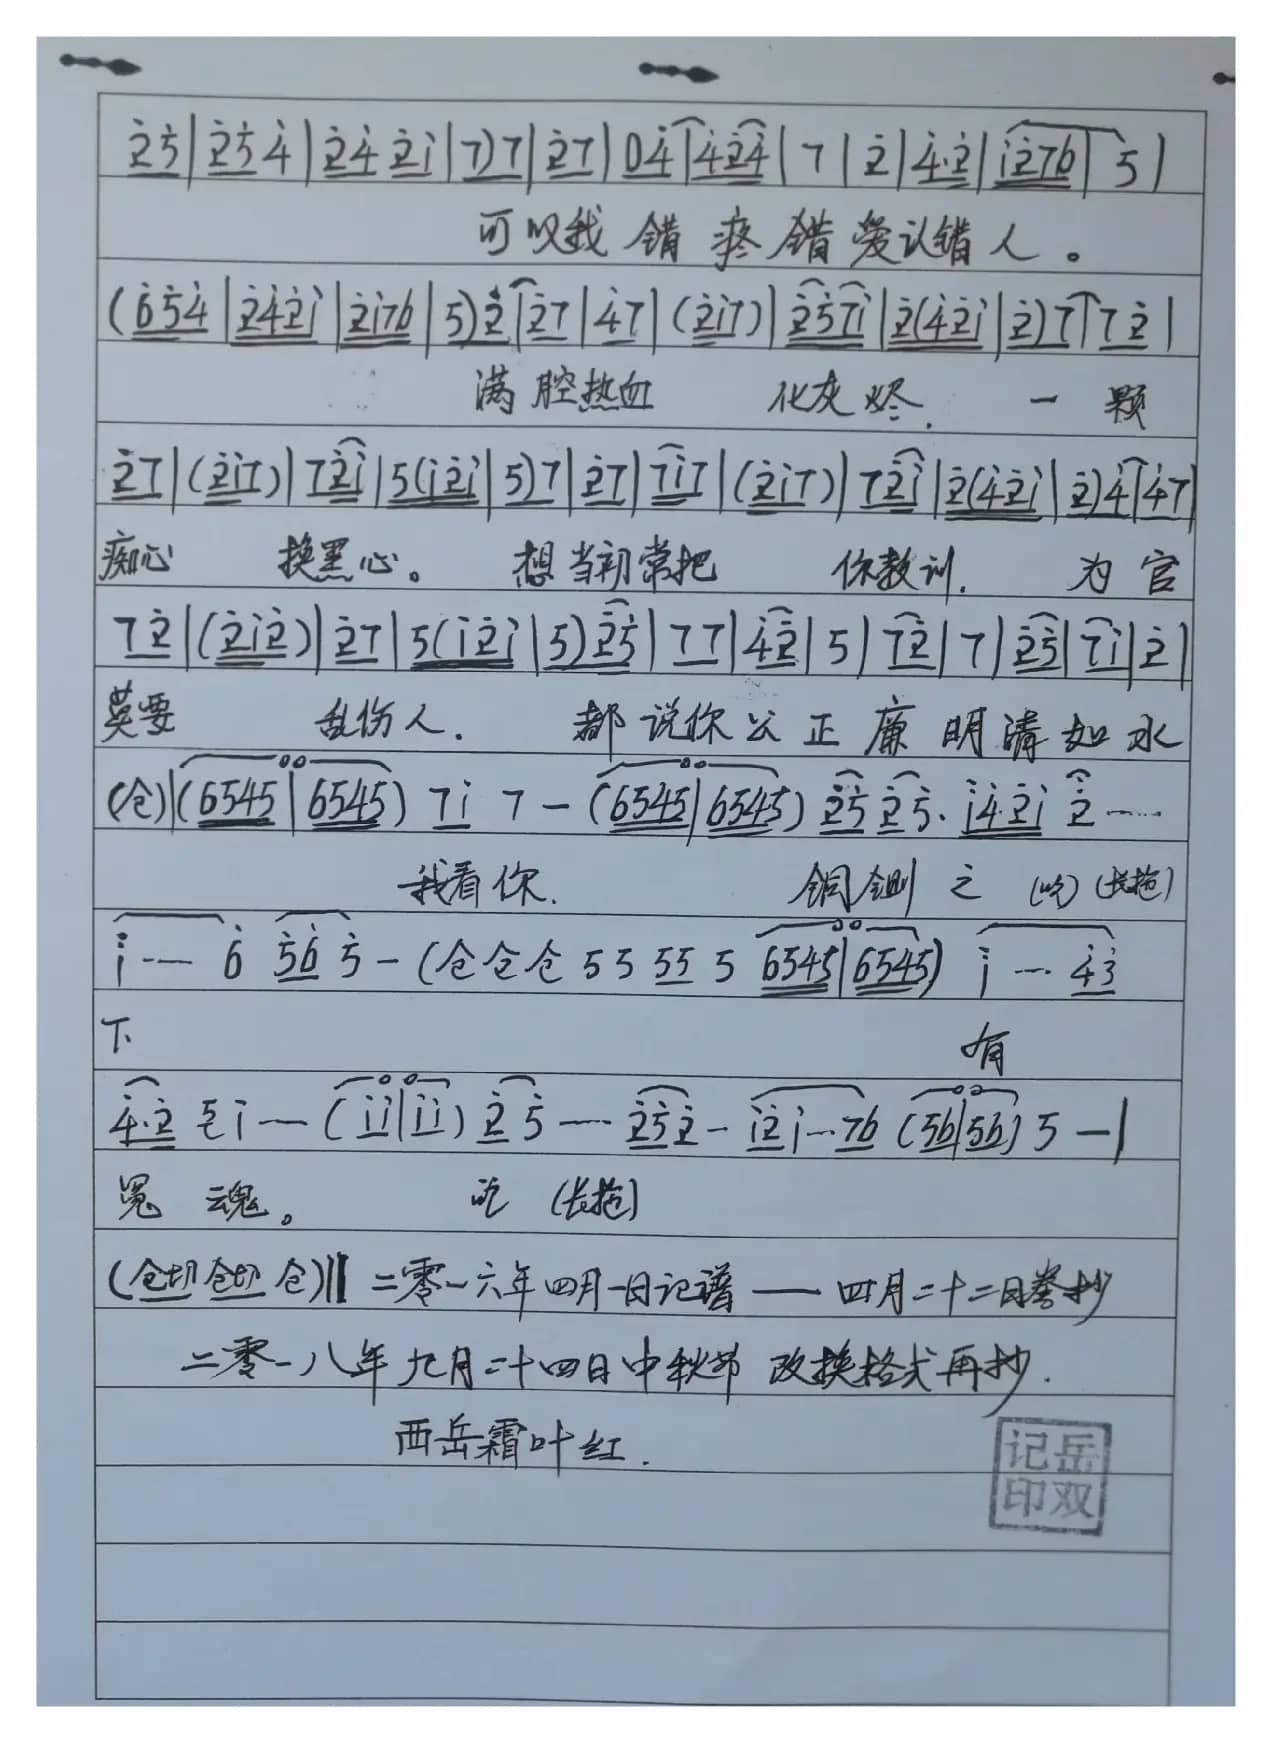 2̇5̇|2̇5̇4̇|2̇4̇ 2̇1̇|7)7|2̇7|04̇|4̇2̇4̇|7|2̇|4̇·2̇|1̇2̇76|5|
可叹我错疼错爱认错人。
(6̇5̇4̇|2̇4̇2̇1̇|2̇1̇76|5)2̇|2̇7|4̇7|(2̇1̇7)|2̇5̇71̇|2̇(4̇2̇1̇|2̇)7|72̇|
满腔热血 化灰烬. 一颗
2̇7|(2̇1̇7)|72̇1̇|5(1̇2̇1̇|5)7|2̇7|71̇7|(2̇1̇7)|72̇1̇|2̇(4̇2̇1̇|2̇)4̇|4̇7|
痴心 换黑心。 想当初常把 你教训. 为官
72̇|(2̇1̇2̇)|2̇7|5(1̇2̇1̇|5)2̇5̇|77|4̇2̇|5|72̇|7|2̇5̇|71̇|2̇|
莫要 乱伤人. 都说你公正廉明清如水
(仓)|(6545|6545) 71̇ 7 — (6545|6545) 2̇5̇ 2̇5̇· 1̇4̇·2̇1̇ 2̇……
我看你. 铜铡之 (吃) (长拖)
1̇…… 6̇ 5̇6̇ 5̇ — (仓仓仓 55 55 5 6545|6545) 1̇ … 4̇3̇
下 有
4̇·2̇ 1̇ … (1̇1̇|1̇1̇) 2̇ 5̇ … 2̇5̇2̇ — 1̇2̇1̇…76 (56|56) 5 —|
冤魂。 吃 (长拖)
(仓切仓切 仓)‖ 二零一六年四月一日记谱——四月二十二日誊抄
二零一八年九月二十四日中秋节 改换格式再抄.
西岳霜叶红.
岳双记印